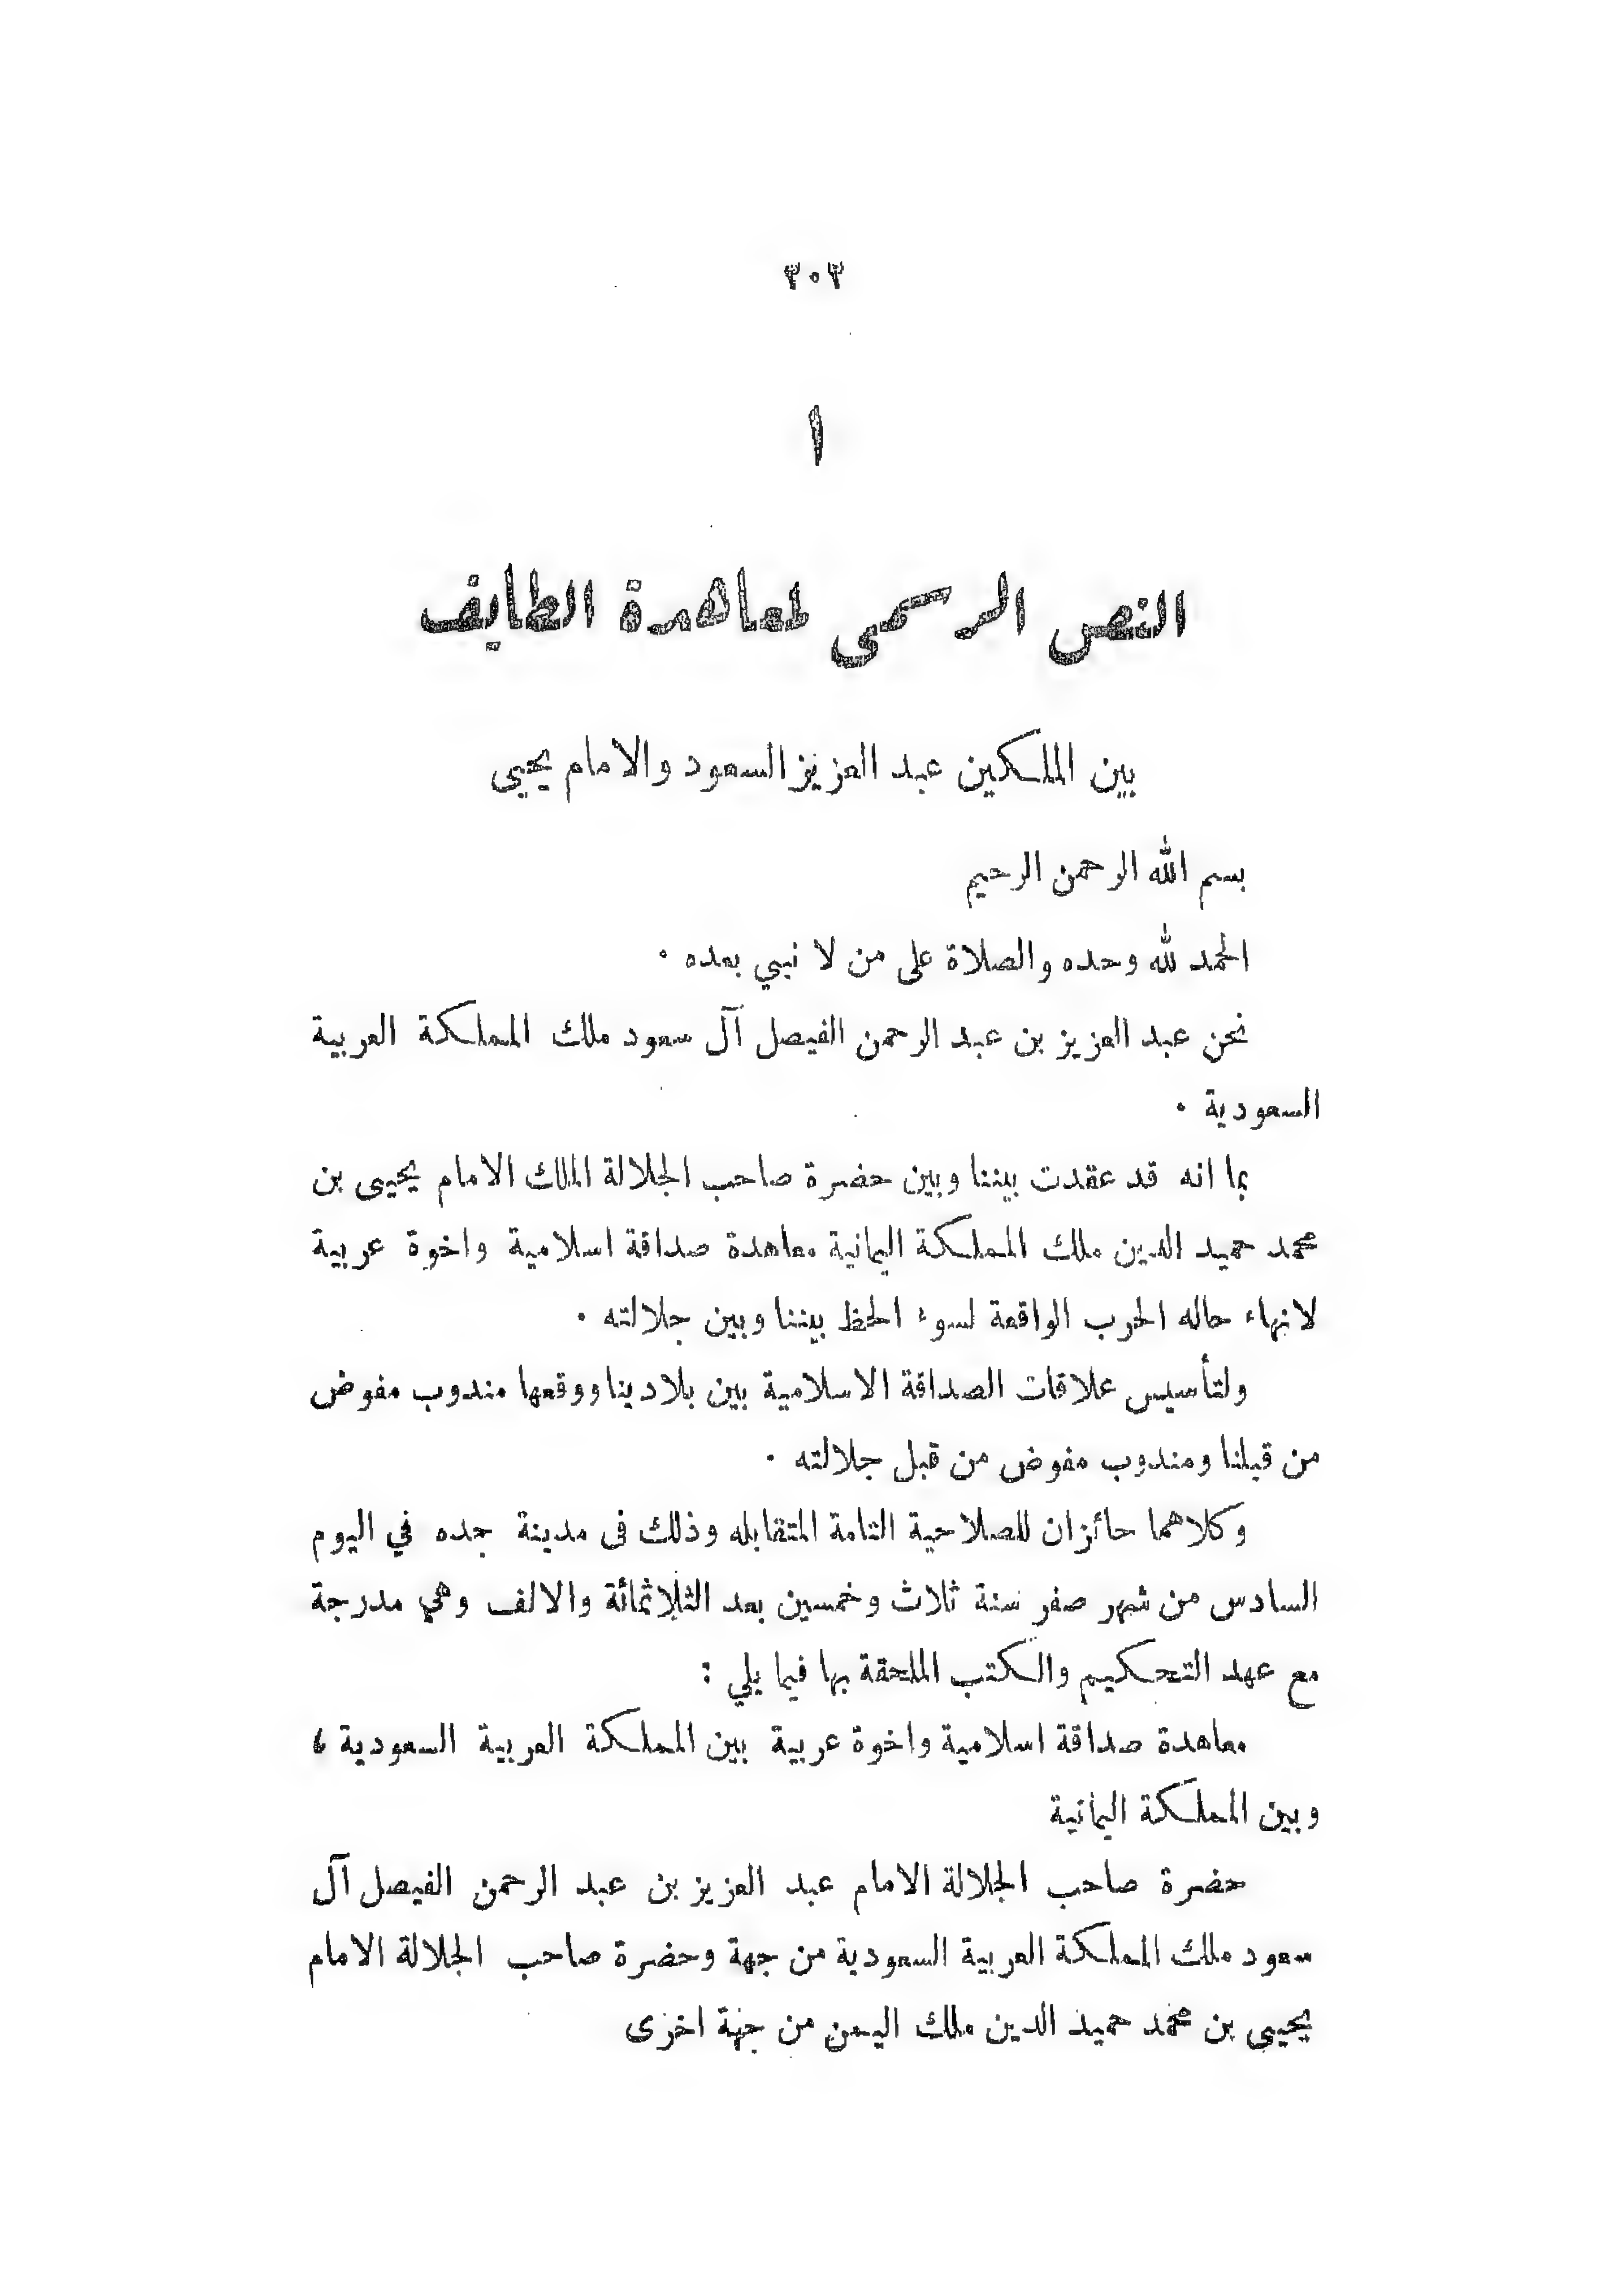 ٣٠٣
١
النص الرسمى لمعاهدة الطايف
بين الملكين عبد العزيز السعود والامام يحيى
بسم الله الرحمن الرحيم
الحمد لله وحده والصلاة على من لا نبي بعده .
نحن عبد العزيز بن عبد الرحمن الفيصل آل سعود ملك المملكة العربية
السعودية .
بما انه قد عقدت بيننا وبين حضرة صاحب الجلالة الملك الامام يحيى بن
محمد حميد الدين ملك المملكة اليمانية معاهدة صداقة اسلامية واخوة عربية
لانهاء حاله الحرب الواقعة لسوء الحظ بيننا وبين جلالته .
ولتأسيس علاقات الصداقة الاسلامية بين بلادينا ووقعها مندوب مفوض
من قبلنا ومندوب مفوض من قبل جلالته .
وكلاهما حائزان للصلاحية التامة المتقابله وذلك فى مدينة جده في اليوم
السادس من شهر صفر سنة ثلاث وخمسين بعد الثلاثمائة والالف وهي مدرجة
مع عهد التحكيم والكتب الملحقة بها فيما يلي :
معاهدة صداقة اسلامية واخوة عربية بين المملكة العربية السعودية ،
وبين المملكة اليمانية
حضرة صاحب الجلالة الامام عبد العزيز بن عبد الرحمن الفيصل آل
سعود ملك المملكة العربية السعودية من جهة وحضرة صاحب الجلالة الامام
يحيى بن محمد حميد الدين ملك اليمن من جهة اخرى